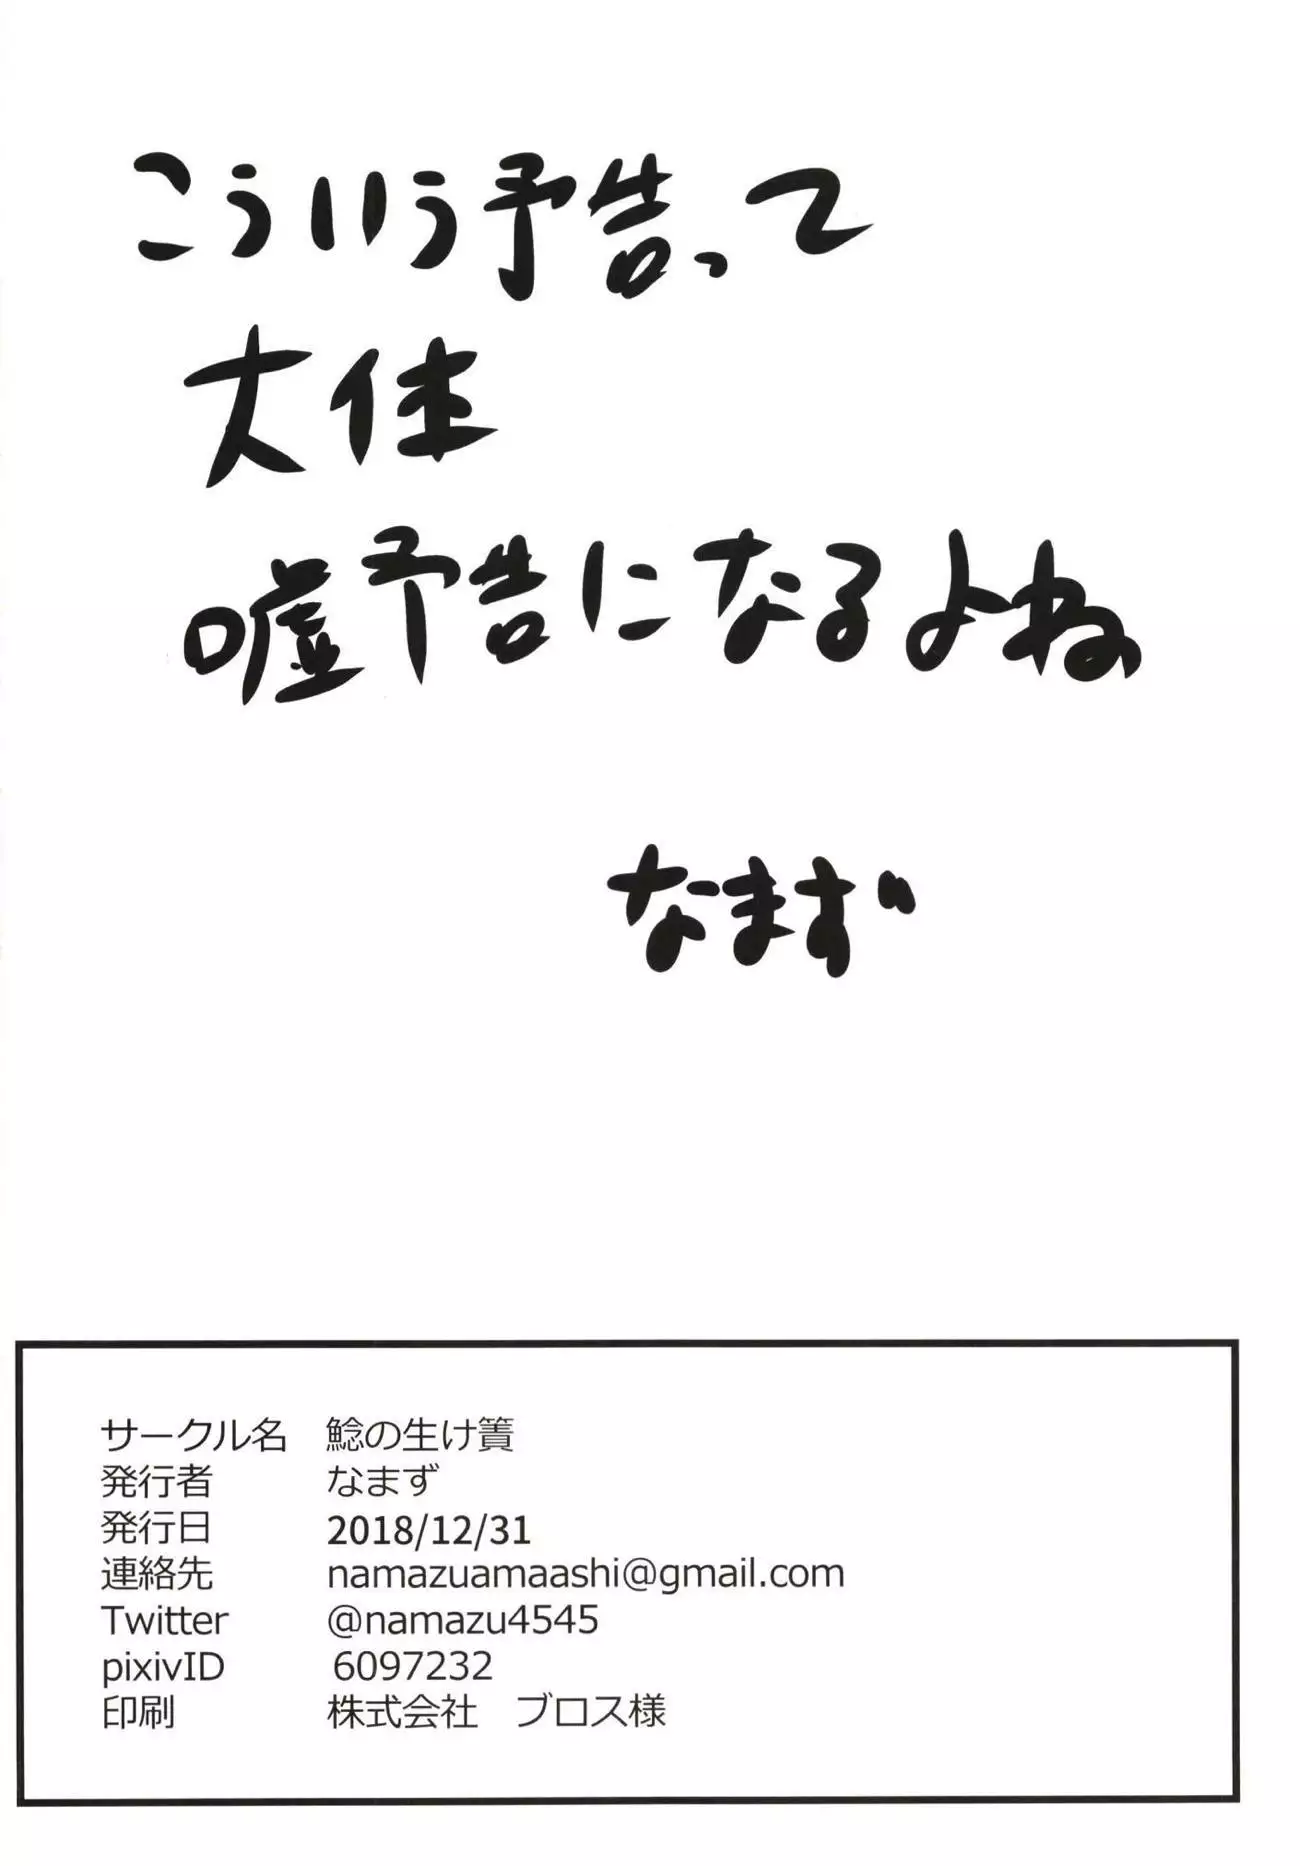 こういう予告って
大体
嘘予告になるよね
なまず
サークル名 鯰の生け簀
発行者 なまず
発行日 2018/12/31
連絡先 namazuamaashi@gmail.com
Twitter @namazu4545
pixivID 6097232
印刷 株式会社 ブロス様